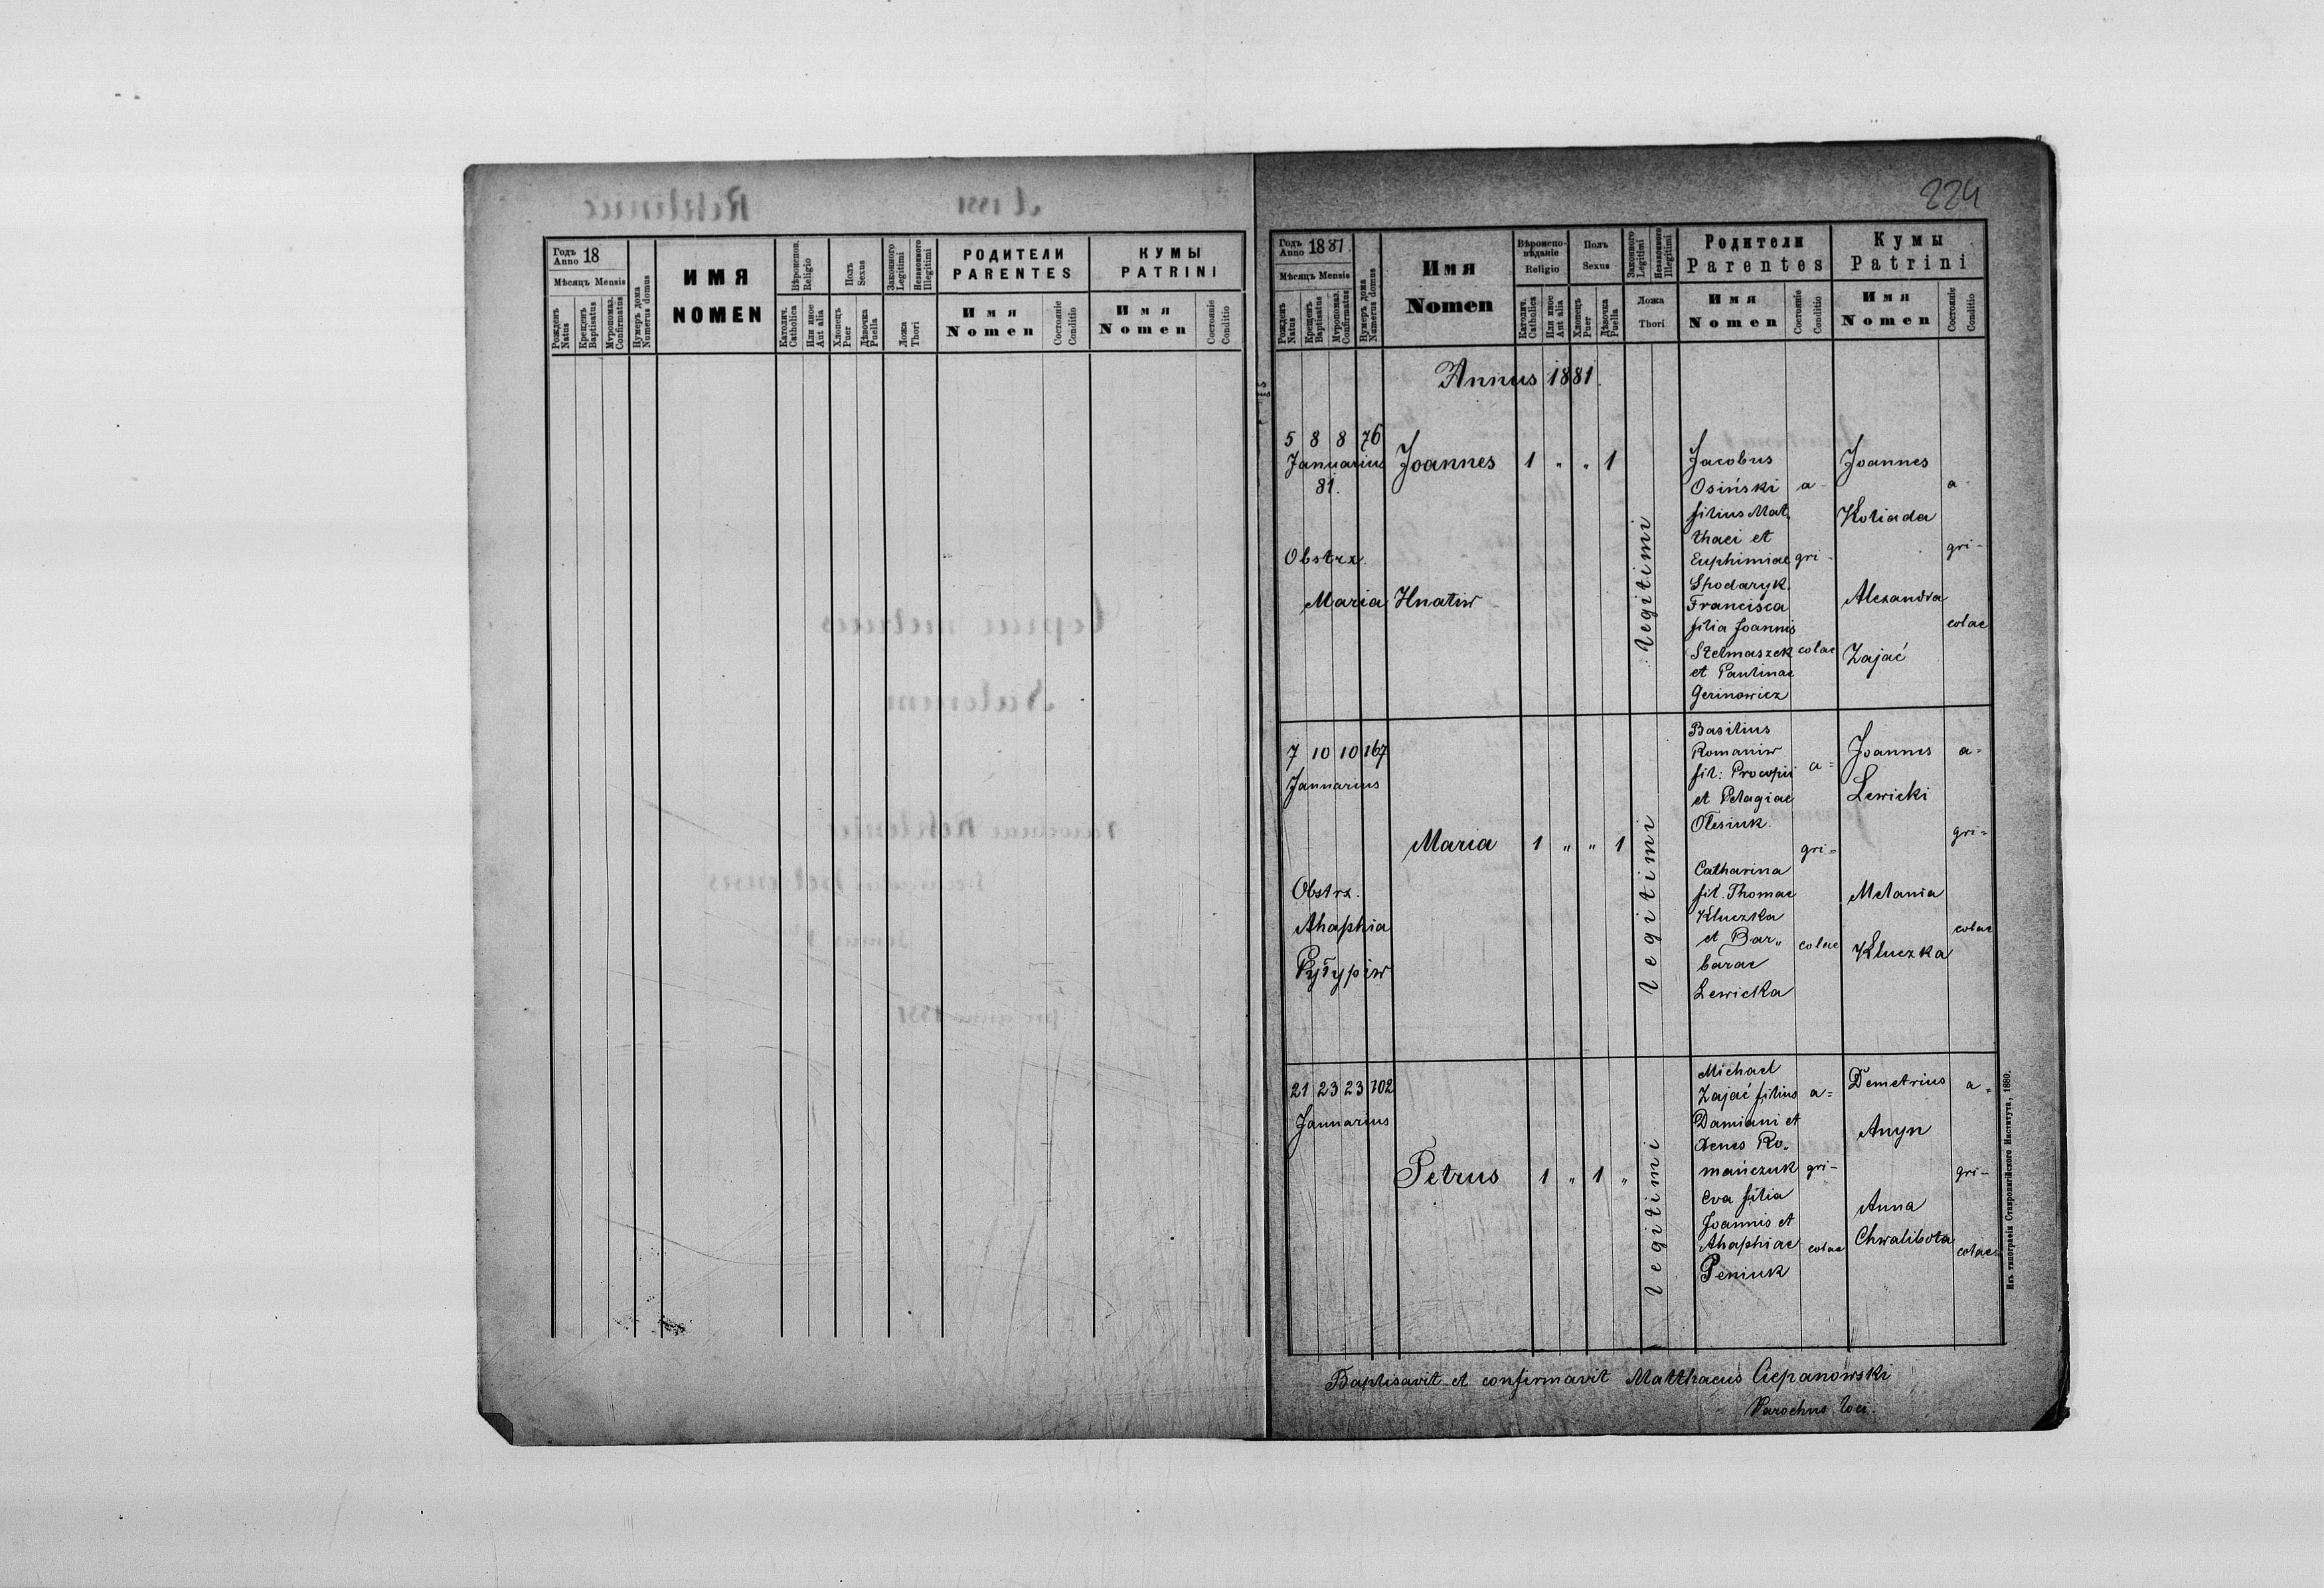 224
Годъ Anno 18
Мѣсяцъ Mensis
Рожденъ Natus
Крещенъ Baptisatus
Мѵропомаз. Confirmatus
Нумеръ дома Numerus domus
ИМЯ
NOMEN
Вѣроиспов. Religio
Католич. Catholica
Или иное Aut alia
Полъ Sexus
Хлопецъ Puer
Дѣвочка Puella
Законного Legitimi
Незаконного Illegitimi
Ложа Thori
РОДИТЕЛИ
PARENTES
Имя
Nomen
Состояніе Conditio
КУМЫ
PATRINI
Имя
Nomen
Состояніе Conditio
Годъ Anno 1881.
Мѣсяцъ Mensis
Рожденъ Natus
Крещенъ Baptisatus
Мѵропомаз. Confirmatus
Нумеръ дома Numerus domus
Имя
Nomen
Вѣроиспо-
вѣданіе
Religio
Католич. Catholica
Или иное Aut alia
Полъ
Sexus
Хлопецъ Puer
Дѣвочка Puella
Законного Legitimi
Незаконного Illegitimi
Ложа
Thori
Родители
Parentes
Имя
Nomen
Состояніе Conditio
Кумы
Patrini
Имя
Nomen
Состояніе Conditio
Annus 1881.
5 8 8 76
Januarius
81.
Obstrx.
Maria Hnatiw
Joannes 1 " " 1
Legitimi
Jacobus
Osiński a-
filius Mat„
thaei et
Euphimiae gri-
Spodaryk.
Francisca
filia Joannis
Stelmaszek colae
et Paulinae
Gerinowicz
Joannes
a-
Koliada
gri-
Alexandra
colae
Zajać
7 10 10 167
Januarius
Obstrx.
Ahaphia
Maria 1 " " 1
Legitimi
Basilius
Romaniw
fil: Procopii a=
et Pelagiae
Olesiuk.
gri=
Catharina
fil. Thomae
Kluczka
et Bar„ colae
barae
Lewicka
Joannes a=
Lewicki
gri=
Melania
colae
Kluczka
21 23 23 102
Januarius
Petrus 1 " 1 "
Legitimi
Michael
Zajać filius a=
Damiani et
Xenes Ro„
mańczuk gri-
Eva filia
Joannis et
Ahaphiae colae
Peniuk
Demetrius a=
Anyn
gri-
Anna
Chwalibota colae
Baptisavit et confirmavit Matthaeus Ciepanowski
Parochus loci.
Изъ типографіи Ставропигійского Института, 1880.